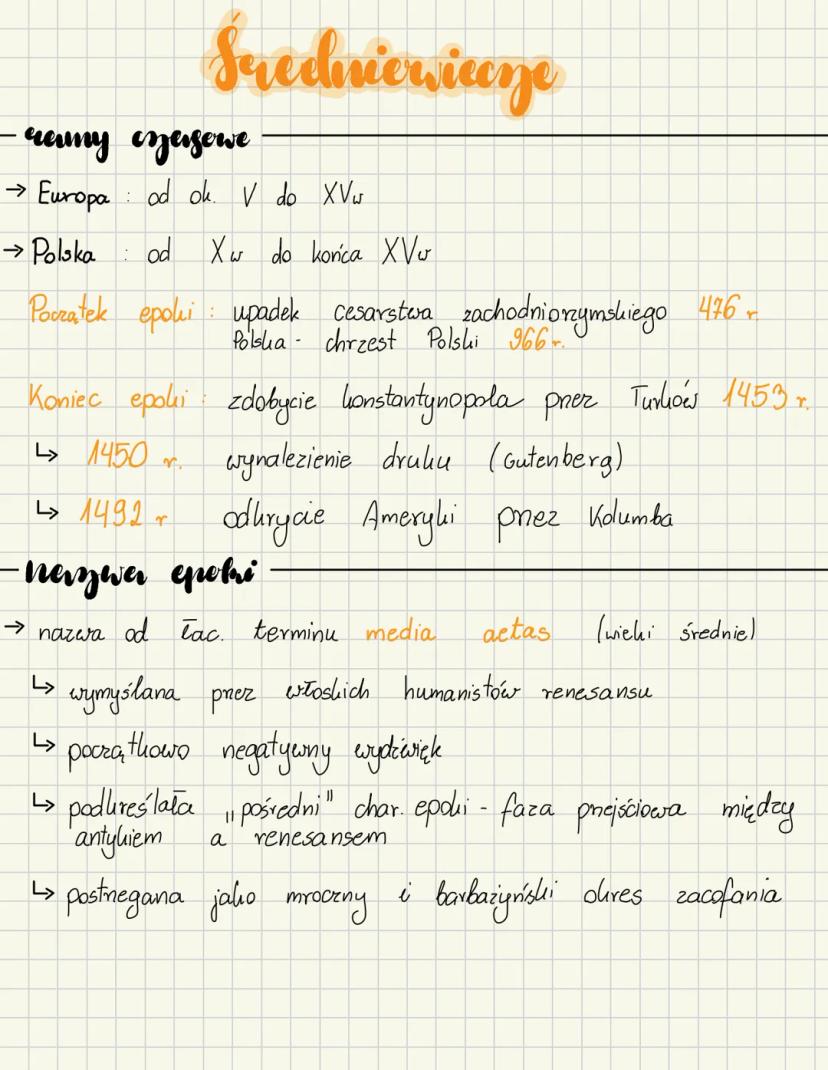 Średniowiecze
ramy czasowe
→ Europa : od ok. V do XVw
→ Polska : od Xw do końca XVw
Początek epoki : upadek cesarstwa zachodniorzymskiego 476 r.
Polska - chrzest Polski 966 r.
Koniec epoki : zdobycie konstantynopola przez Turków 1453 r.
↳ 1450 r. wynalezienie druku (Gutenberg)
↳ 1492 r odkrycie Ameryki przez Kolumba
nazwa epoki
→ nazwa od łac. terminu media aetas (wieki średnie)
↳ wymyślana przez włoskich humanistów renesansu
↳ początkowo negatywny wydźwięk
↳ podkreślała „pośredni" char. epoki - faza przejściowa między
antykiem a renesansem
↳ postrzegana jako mroczny i barbażyński okres zacofania